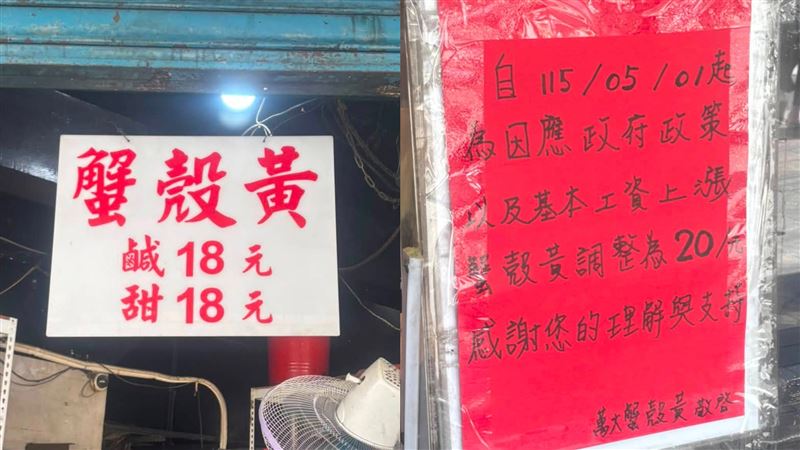 蟹殼黃
鹹18元
甜18元
自 115/05/01起
為因應政府政策
以及基本工資上漲
蟹殼黃調整為20/元
感謝您的理解與支持
萬大蟹殼黃敬啓